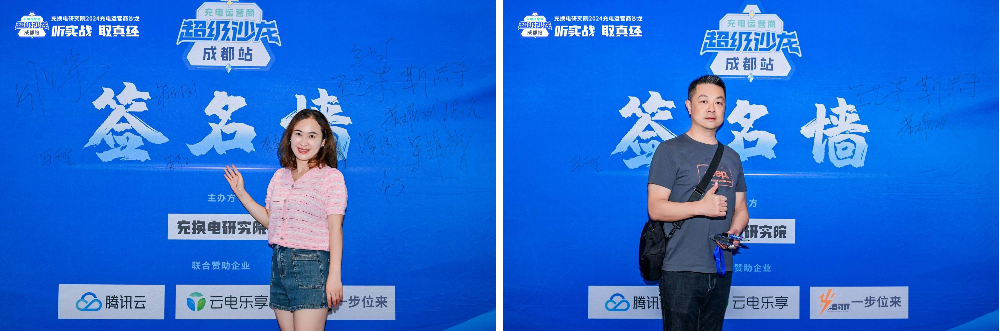 充电运营商
超级沙龙
成都站
充换电研究院2024充电运营商沙龙
听实战 取真经
充电运营商
超级沙龙
成都站
签名墙
主办方
充换电研究院
联合赞助企业
腾讯云
云电乐享
一步位来
充电运营商
超级沙龙
成都站
充换电研究院2024充电运营商沙龙
听实战 取真经
充电运营商
超级沙龙
成都站
签名墙
方
研究院
联合赞助企业
腾讯
云电乐享
一步位来